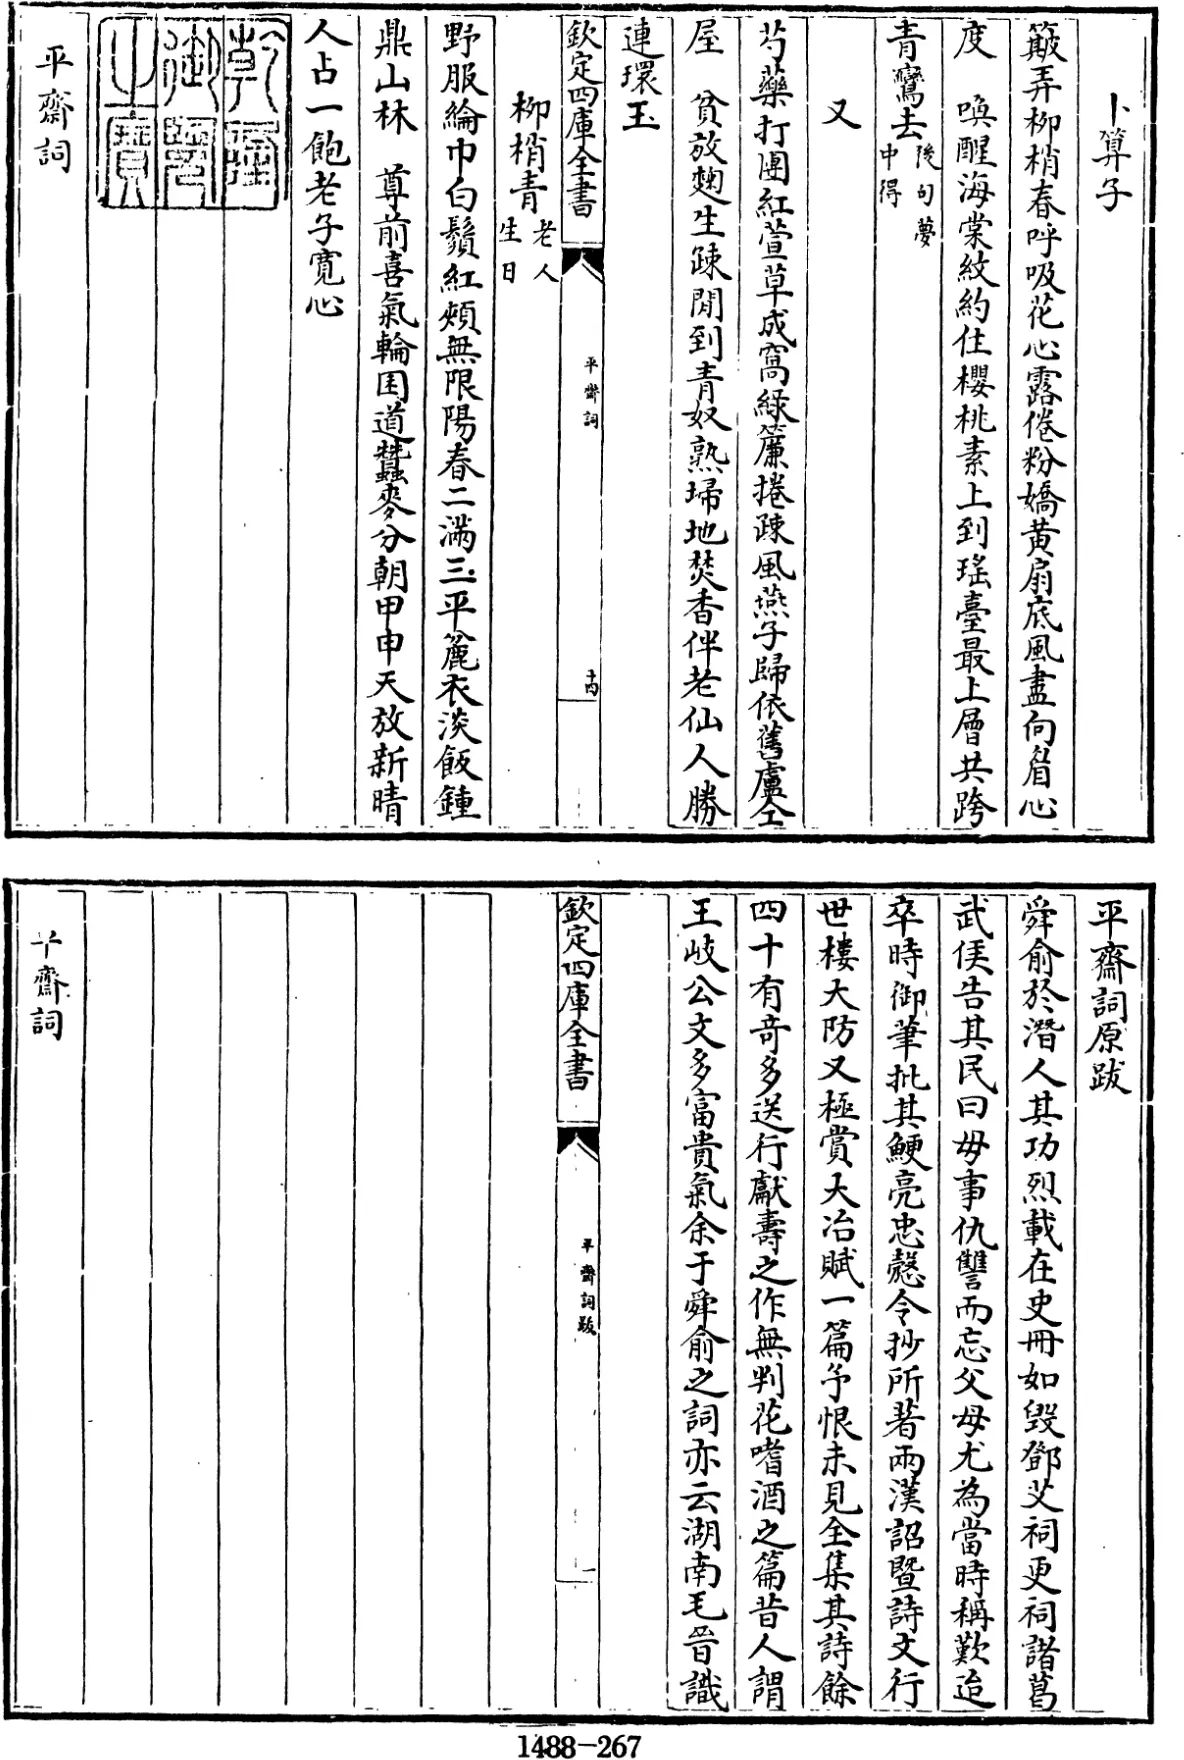 卜算子
簸弄柳梢春呼吸花心露倦粉嬌黃扇底風盡向眉心
度　喚醒海棠紋約住櫻桃素上到瑤臺最上層共跨
青鸞去後句夢中得
又
芍藥打團紅萱草成窩綠簾捲疎風燕子歸依舊盧仝
屋　貧放麴生疎閒到青奴熟埽地焚香伴老仙人勝
連環玉
欽定四庫全書
平齋詞
十四
柳梢青老人生日
野服綸巾白鬚紅頰無限陽春二滿三平麄衣淡飯鍾
鼎山林　尊前喜氣輪囷道蠶麥分朝甲申天放新晴
人占一飽老子寬心
乾隆御覽之寶
平齋詞
平齋詞原跋
舜俞於潛人其功烈載在史冊如毀鄧艾祠更祠諸葛
武侯告其民曰毋事仇讐而忘父母尤為當時稱歎迨
卒時御筆批其鯁亮忠慤令抄所著兩漢詔暨詩文行
世樓大防又極賞大冶賦一篇予恨未見全集其詩餘
四十有奇多送行獻壽之作無判花嗜酒之篇昔人謂
王岐公文多富貴氣余于舜俞之詞亦云湖南毛晉識
欽定四庫全書
平齋詞跋
一
平齋詞
1488-267